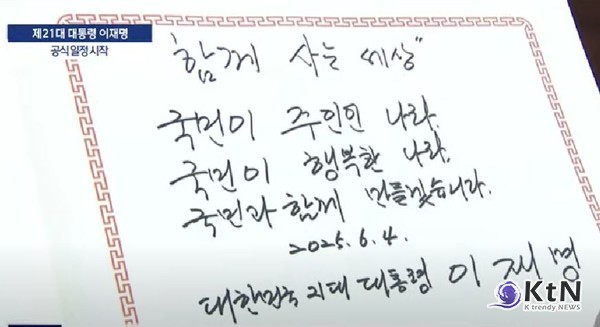 제21대 대통령 이재명
공식 일정 시작
"함께 사는 세상"
국민이 주인인 나라,
국민이 행복한 나라,
국민과 함께 만들겠습니다.
2025. 6. 4.
대한민국 21대 대통령 이재명
KtN
K trendy NEWS